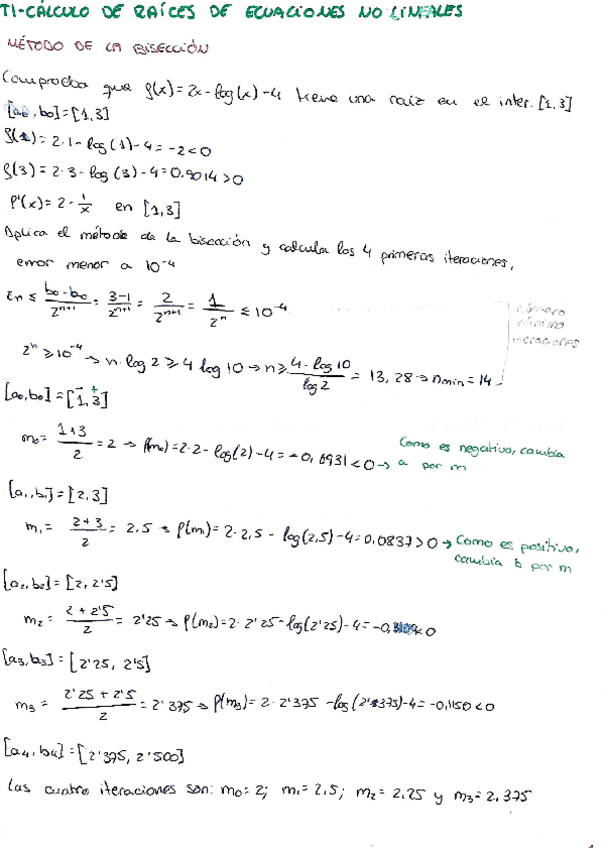 T1-CÁLCULO DE RAÍCES DE ECUACIONES NO LINEALES
MÉTODO DE LA BISECCIÓN
Comprueba que f(x)=2x-log(x)-4 tiene una raíz en el inter. [1,3]
[a₀,b₀]=[1,3]
f(1)=2·1-log(1)-4=-2<0
f(3)=2·3-log(3)-4=0,9014>0
f'(x)=2-1/x en [1,3]
Aplica el método de la bisección y calcula las 4 primeras iteraciones,
error menor a 10⁻⁴
En ≤ b₀-b₀/2ⁿ⁺¹ = 3-1/2ⁿ⁺¹ = 2/2ⁿ⁺¹ = 1/2ⁿ ≤ 10⁻⁴
número
mínimo
iteraciones
2ⁿ ≥ 10⁻⁴ → n·log 2 ≥ 4 log 10 → n ≥ 4·log 10/log 2 = 13,28 → nmin = 14
[a₀,b₀]=[1⁻,3⁺]
m₀= 1+3/2 = 2 → f(m₀)=2·2-log(2)-4=-0,6931<0 → Como es negativo, cambia
a por m
[a₁,b₁]=[2,3]
m₁= 2+3/2 = 2,5 → f(m₁)=2·2,5-log(2,5)-4=0,0837>0 → Como es positivo,
cambia b por m
[a₂,b₂]=[2,2'5]
m₂= 2+2'5/2 = 2'25 → f(m₂)=2·2'25-log(2'25)-4=-0,3<0
[a₃,b₃]=[2'25, 2'5]
m₃= 2'25+2'5/2 = 2'375 → f(m₃)=2·2'375-log(2'375)-4=-0,1150<0
[a₄,b₄]=[2'375, 2'500]
Las cuatro iteraciones son: m₀=2; m₁=2,5; m₂=2,25 y m₃=2,375